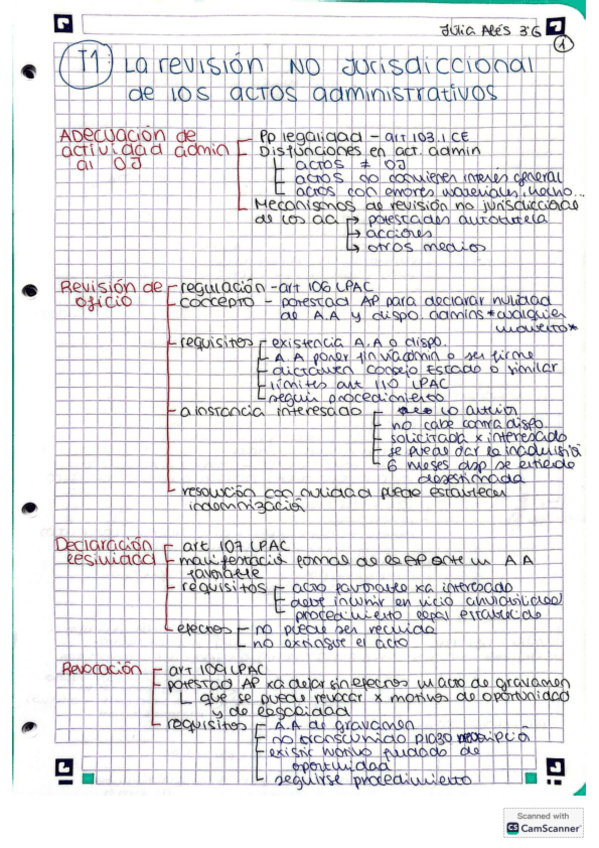 Julia Alés 3ºG
1
T1: La revisión NO jurisdiccional
de los actos administrativos
Adecuación de
actividad admin
al OJ
Pp legalidad - art 103.1 CE
Disfunciones en act. admin
actos ≠ OJ
actos no convienen interés general
actos con errores materiales, hecho...
Mecanismos de revisión no jurisdiccional
de los aa → potestades autotutela
→ acciones
→ otros medios
Revisión de
oficio
regulación - art 106 LPAC
concepto - potestad AP para declarar nulidad
de A.A y dispo. admins *cualquier
momento*
requisitos
existencia A.A o dispo.
A.A poner fin vía admin o ser firme
dictamen Consejo Estado o similar
límites art 110 LPAC
seguir procedimiento
a instancia interesado
lo anterior
no cabe contra dispo.
solicitada x interesado
se puede dar la inadmisión
6 meses dsp se entiende
desestimada
resolución con nulidad puede establecer
indemnización
Declaración
lesividad
art 107 LPAC
manifestació formal de la AP ante un AA
favorable
requisitos
acto favorable xa interesado
debe incurrir en vicio anulabilidad
procedimiento legal establecido
efectos
no puede ser recurrido
no extingue el acto
Revocación
art 109 LPAC
potestad AP xa dejar sin efectos un acto de gravamen
que se puede revocar x motivos de oportunidad
y de legalidad
requisitos
A.A de gravamen
no transcurrido plazo prescripció
existir motivo fundado de
oportunidad
seguirse procedimiento
Scanned with
CS CamScanner